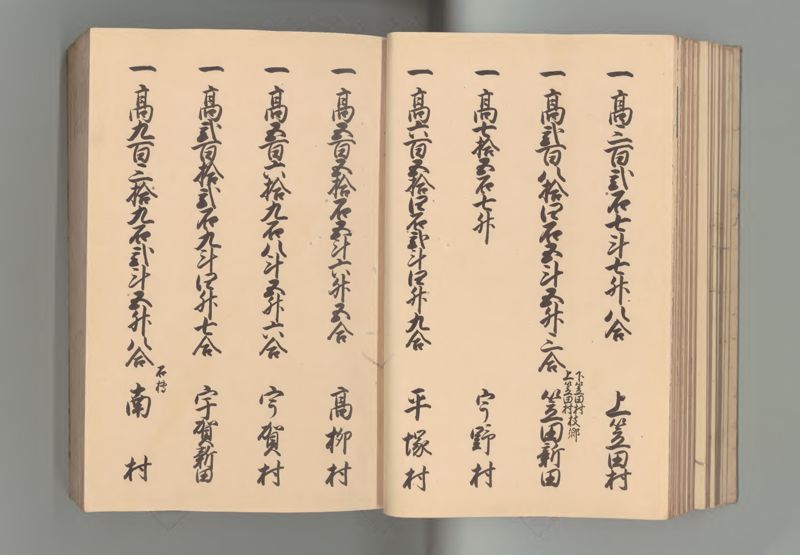 一 高三百弐石七斗七升八合 上笠田村
一 高弐百八拾四石五斗五升三合 下笠田村上笠田村枝郷 笠田新田
一 高七拾五石七升 宇野村
一 高六百五拾四石弐斗四升九合 平塚村
一 高五百五拾石五斗六升五合 高柳村
一 高五百六拾九石八斗五升六合 宇賀村
一 高弐百拾弐石九斗四升七合 宇賀新田
一 高九百三拾九石弐斗五升八合 石榑 南村